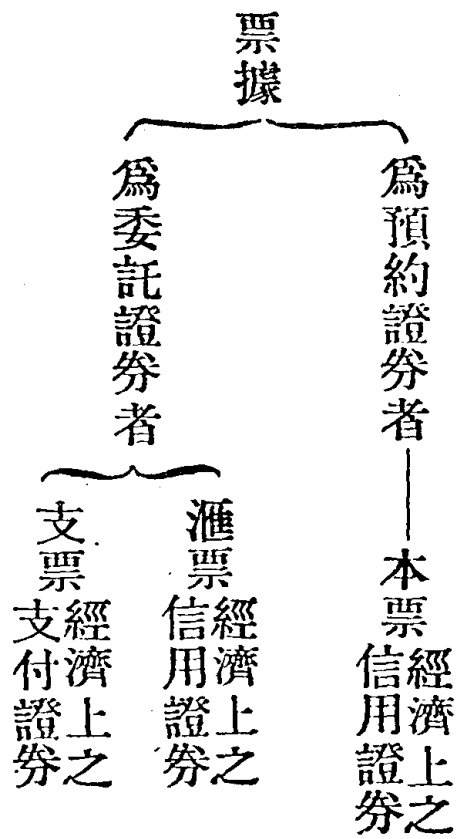 票據
爲預約證券者
本票
經濟上之
信用證券
爲委託證券者
滙票
經濟上之
信用證券
支票
經濟上之
支付證券